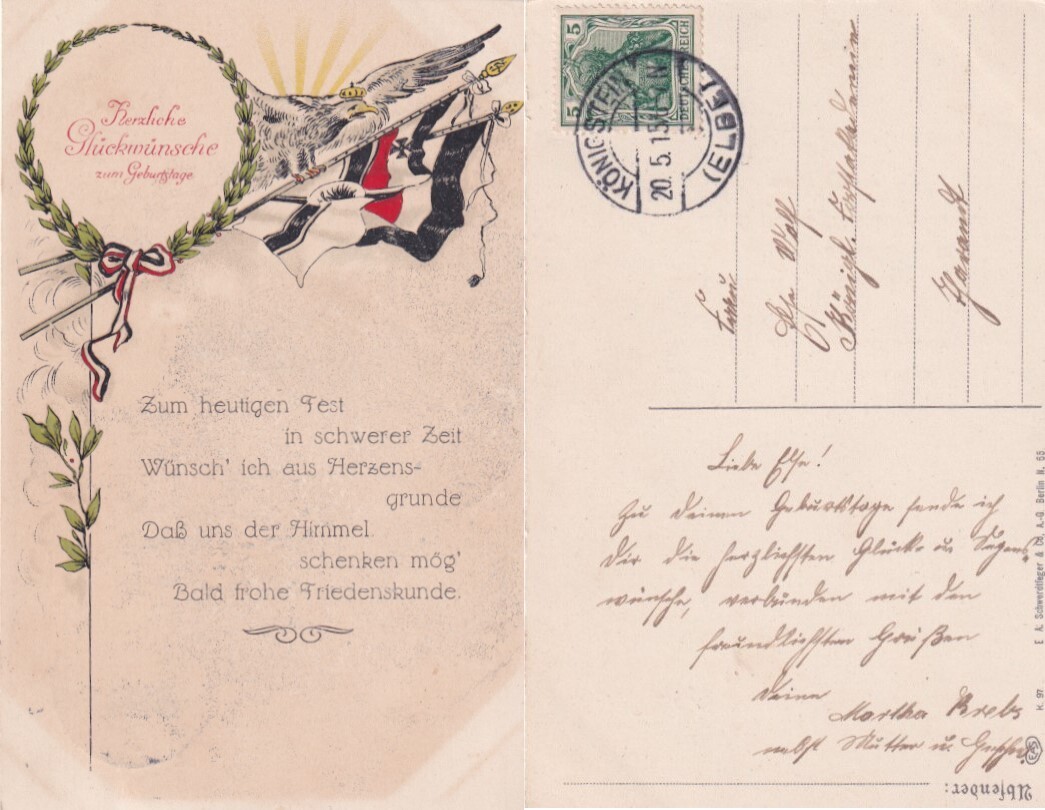 Herzliche
Glückwünsche
zum Geburtstage
Zum heutigen Fest
in schwerer Zeit
Wünsch' ich aus Herzens-
grunde
Daß uns der Himmel
schenken mög'
Bald frohe Friedenskunde.
5 5
DEUTSCHES REICH
KÖNIGSTEIN (ELBE)
20.5.15
Frau
Else Wolf
Königl.
Liebe Else!
Zu Deinem Geburtstage sende ich
Dir die herzlichsten Glück- u. Segens-
wünsche, verbunden mit den
freundlichsten Grüßen
Deine
Martha Krebs
nebst Mutter u. Geschw.
Absender:
E. A. Schwerdtfeger & Co. A.-G. Berlin N. 55
K. 97
EAS